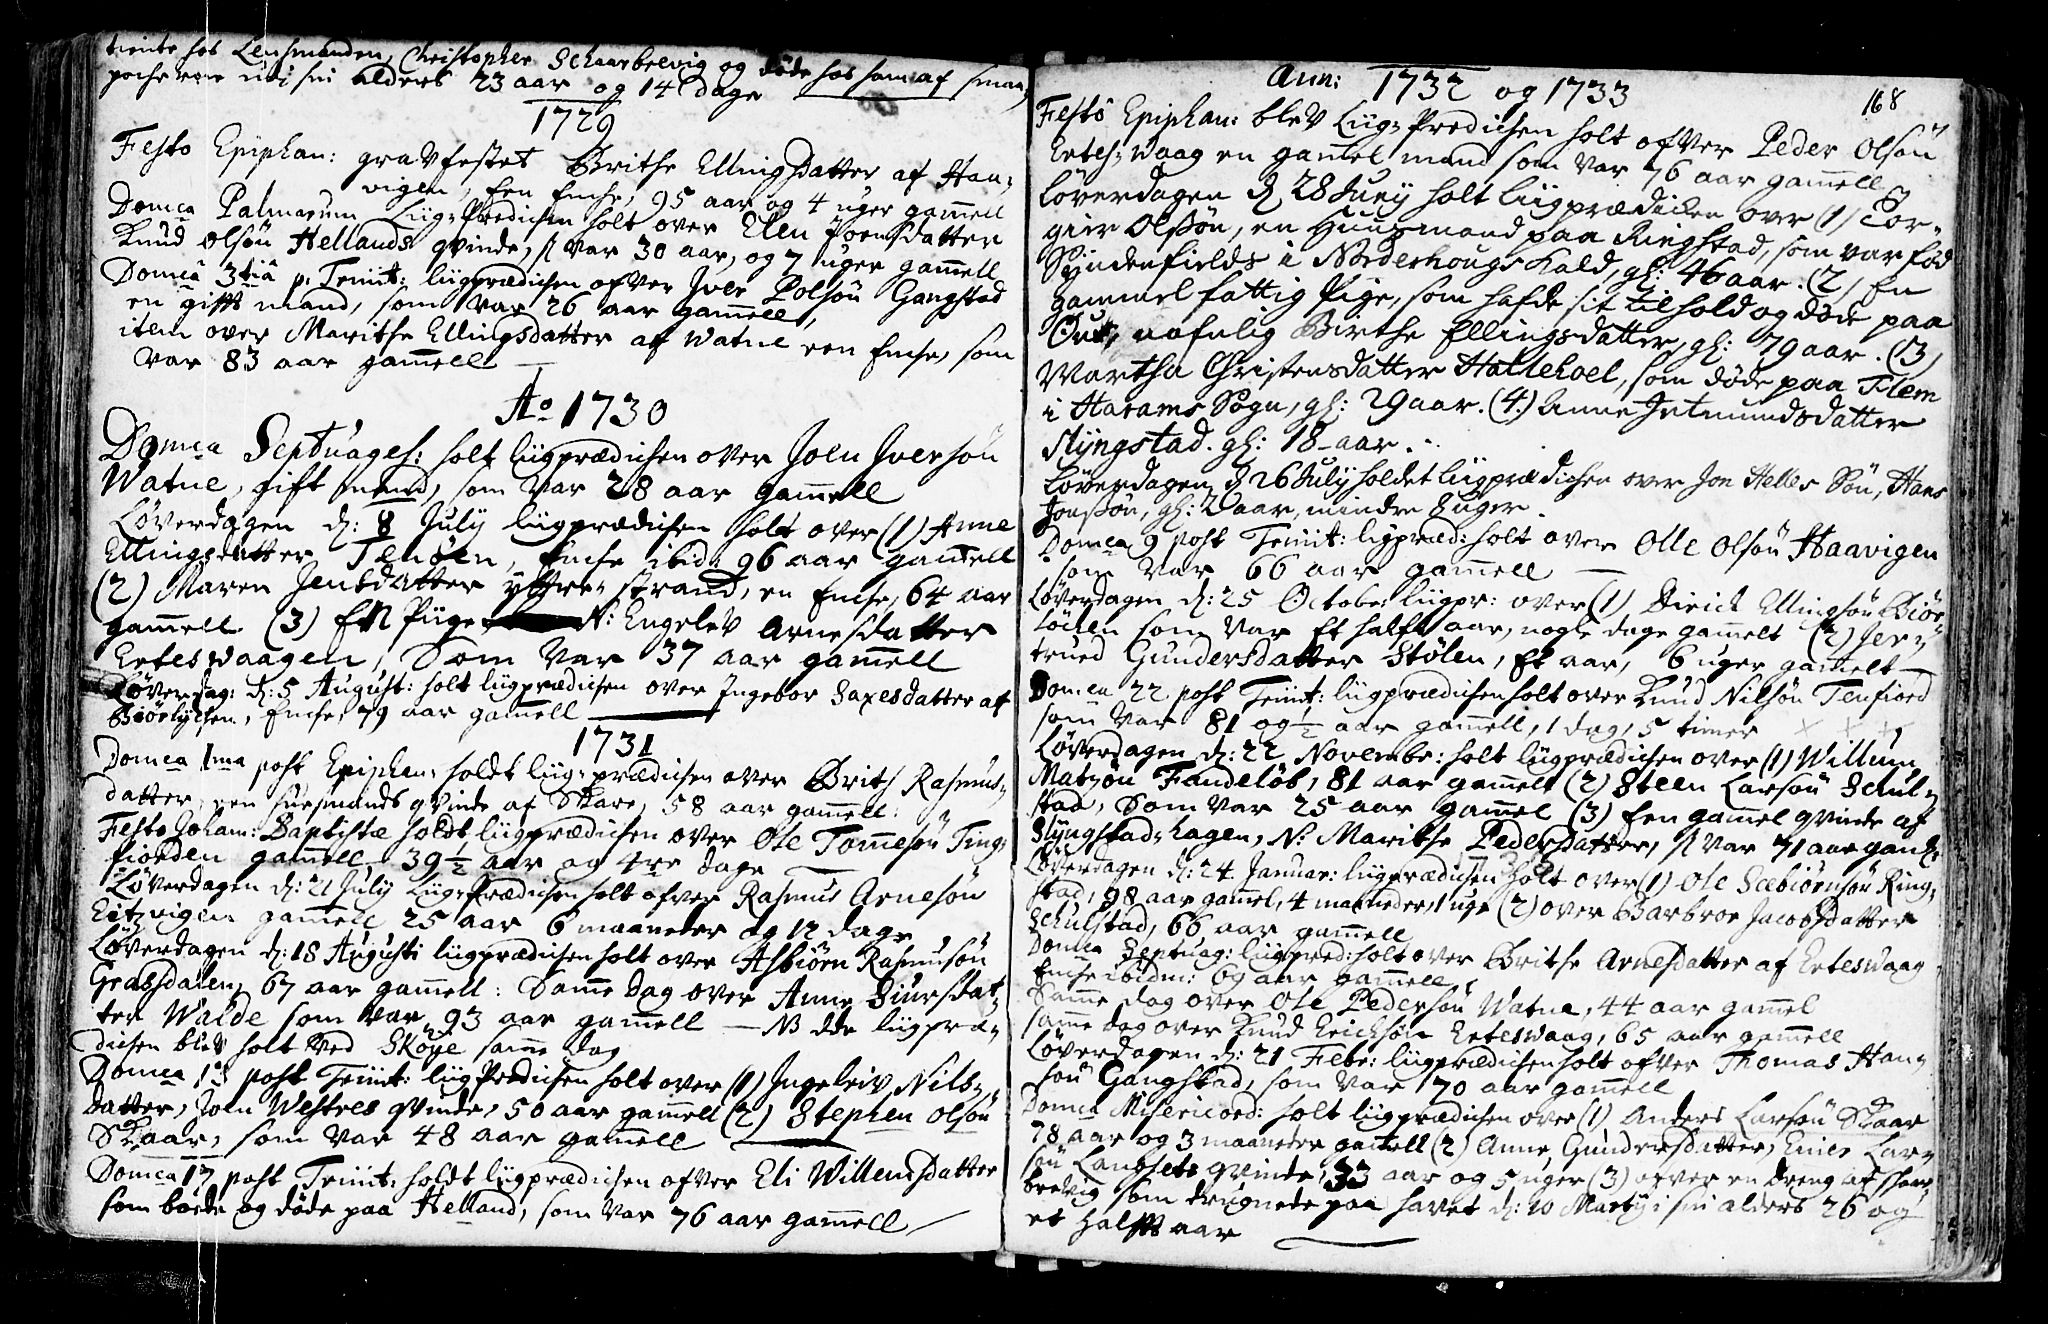 tiente hos Lensmanden, Christopher Schaarbrevig og døde hos ham af smaa-
pocherne udi sin alders 23 aar og 14 dage
1729
Festo Epiphan: gravfestet Brithe Ellingsdatter af Haa-
vigen, Een Enche, 95 aar og 4 uger gamell
Domca Palmarum Liig-Predichen holt over Elen Joensdatter
Knud Olsøn Hellands qvinde, s. var 30 aar, og 7 uger gamell
Domca 3tia p: Trinit: liigprædichen ofver Iver Polsøn Gangstad
en gifft mand, som var 26 aar gamell,
item over Marithe Ellingsdatter af Watne een Enche, som
var 83 aar gamell
Ao 1730
Domca Septuages: holt liigprædichen over Joen Iversøn
Watne, gift mand, som var 28 aar gamell
Løverdagen d: 8 July liigprædichen holt over (1) Anne
Ellingsdatter Tenøen, Enche ibid: 96 aar gamell
(2) Maren Jensdatter yttre-strand, en Enche, 64 aar
gamell (3) En Piige N: Engelev Arnesdatter
Erteswaagen, Som var 37 aar gamell
Løverdag: d: 5 August: holt liigprædichen over Ingebor Saxesdatter af
Biørlychen, Enche, 79 aar gamell
1731
Domca 1ma post Epiphan: holdt liig-prædichen over Brith Rasmus-
datter, een huusmands qvinde af Skare, 58 aar gamell.
Festo Johan: Baptistæ holdt liigprædichen over Ole Tommesøn Ting-
fiorden gamell 39 1/2 aar og 4re dage
Løverdagen d: 21 July Liig-Prædichen holt ofver Rasmus Arnesøn
Eitzvigen gamell 25 aar 6 maaneder og 12 dage
Løverdagen d: 18 Augusti liigprædichen holt over Asbiørn Rasmusøn
Grassdalen, 67 aar gamell: Same dag over Anne Siursdat-
ter Walde som var 93 aar gamell — NB dde liigpræ-
dichen blev holt ved Skøye same dag
Domca 13 post Trinit: liig Predichen holt over (1) Ingeleiv Nils-
datter, Joen Westres qvinde, 50 aar gamell (2) Stephen Olsøn
Skaar, som var 48 aar gamell
Domca 17 post Trinit: holdt liigprædichen ofver Eli Willemsdatter
som boede og døde paa Helland, som var 76 aar gamell
Ann: 1732 og 1733
168
Festo Epiphan: blev Liig-Predichen holt ofver Peder Olsøn
Ertes-waag en gamel mand som var 76 aar gamell
Løverdagen d 28 Juny holt liigprædicken over (1) Tor-
gier Olssøn, en Huusmand paa Ringstad, som var fød
Syndenfields i Nørderhougs Kald, gl: 46 aar. (2) En
gammel fattig Pige, som hafde sit tilhold og døde paa
nafnlig Birthe Ellingsdatter, gl: 79 aar. (3)
Martha Christensdatter Hallehoel, som døde paa Flem
i Harams Sogn, gl: 29 aar. (4.) Anne Jetmundsdatter
Slyngstad. gl: 18 aar.
Løverdagen d 26 July holdet liigprædichen over Jon Helles Søn, Hans
Jonssøn, gl: 2 aar, mindre 8 uger.
Domca 9 post Trinit: ligpræd: holt over Olle Olsøn Haavigen
som var 66 aar gamell
Løverdagen d: 25 Octobr: liigpr: over (1) Dirich Ellingsøn Biør-
løchen som var Et halft aar, nogle dage gamelt (2) Jer-
trued Gundersdatter Stølen, Et aar, 6 uger gamelt
Domca 22 post Trinit: liigprædichen holt over Knud Nilsøn Tenfiord
som var 81 og 1/2 aar gamell, 1 dag, 5 timer
Løverdagen d: 22 Novembr: holt liigprædichen over (1) Willum
Matzøn Fandeløb, 81 aar gamelt (2) Steen Larsøn Schul-
stad, Som var 25 aar gamel (3) Een gamel qvinde af
Slyngstad-hagen, N: Marithe Pedersdatter, s. var 71 aar gaml:
Løverdagen d: 24 Januar: liigprædichen holt over (1) Ole Sæbiørnsøn Ring-
stad, 98 aar gamel, 4 maaneder, 1 uge (2) over Barbroe Jacobsdatter
Schulstad, 66 aar gamell
Domca Septuag: liigpred: holt over Brithe Arnesdatter af Erteswaag
Enche ibidm: 69 aar gamell
Same dag over Ole Pedersøn Watne, 44 aar gamel
same dag over Knud Erichsøn Erteswaag, 65 aar gamell
Løverdagen d: 21 Febr: liigprædichen holt ofver Thomas Han-
søn Gangstad, som var 70 aar gamell
Domca Misericord: holt liigprædichen over (1) Anders Larsøn Skaar
78 aar og 3 maaneder gamell (2) Anne Gundersdatter, Lar-
søn Langsets qvinde, 33 aar og 5 uger (3) ofver en Dreng af Skor-
brevig som druknede paa havet d: 20 Marty i sin alders 26 og
et halfft aar